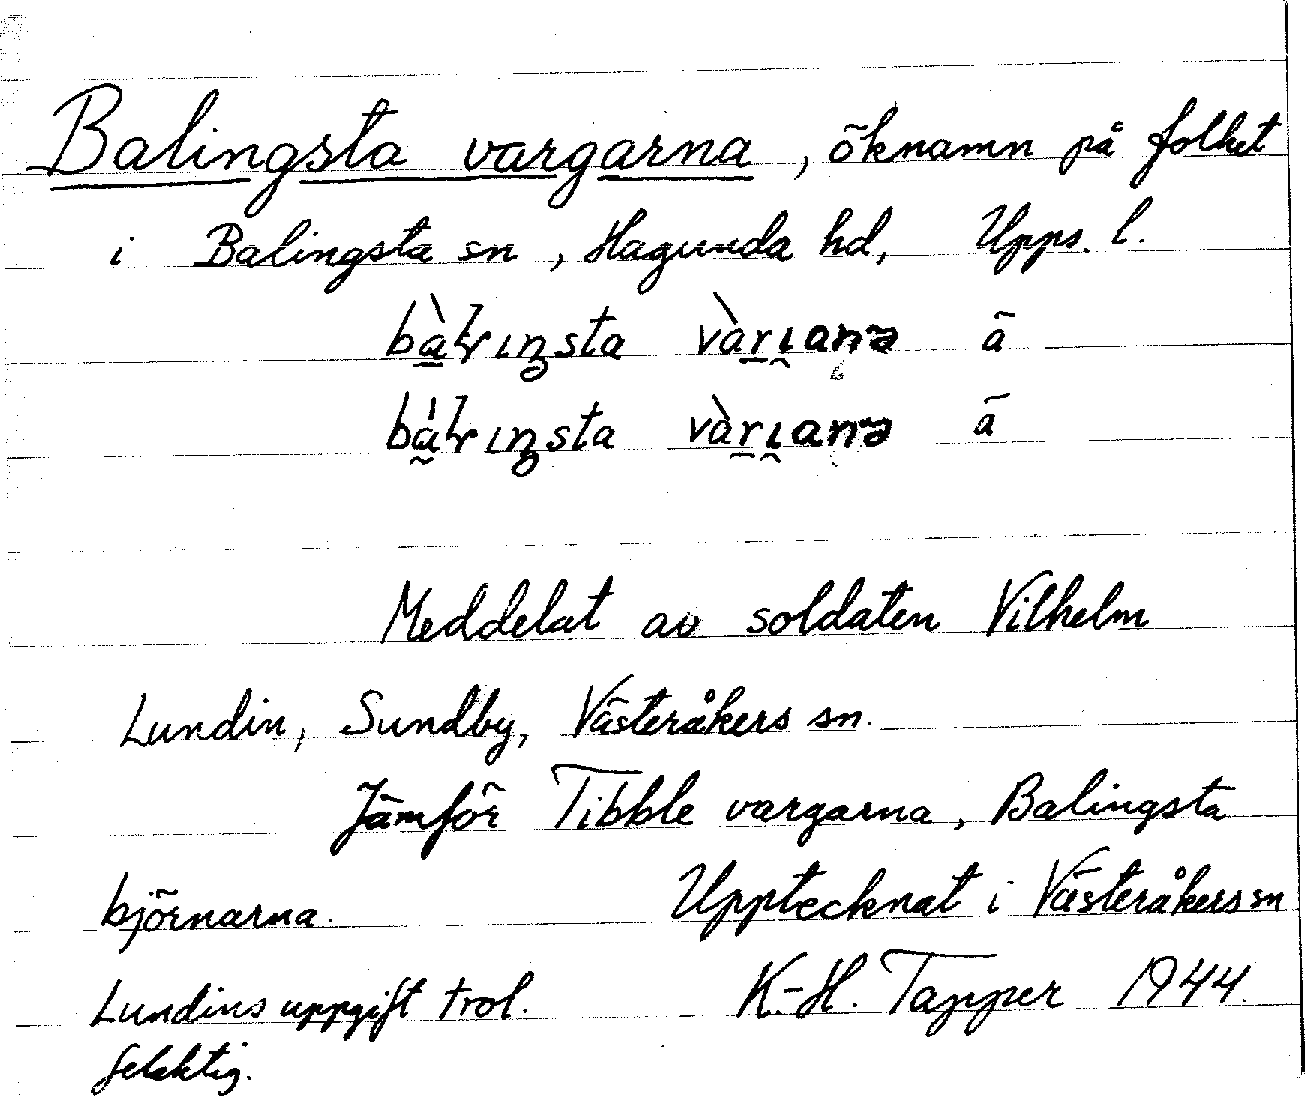 Balingsta vargarna, öknamn på folket
i Balingsta sn, Hagunda hd, Upps. l.
ā
ā
Meddelat av soldaten Vilhelm
Lundin, Sundby, Västeråkers sn.
Jämför Tibble vargarna, Balingsta
björnarna. Upptecknat i Västeråkers sn
Lundins uppgift trol. K.-H. Tapper 1944.
felaktig.